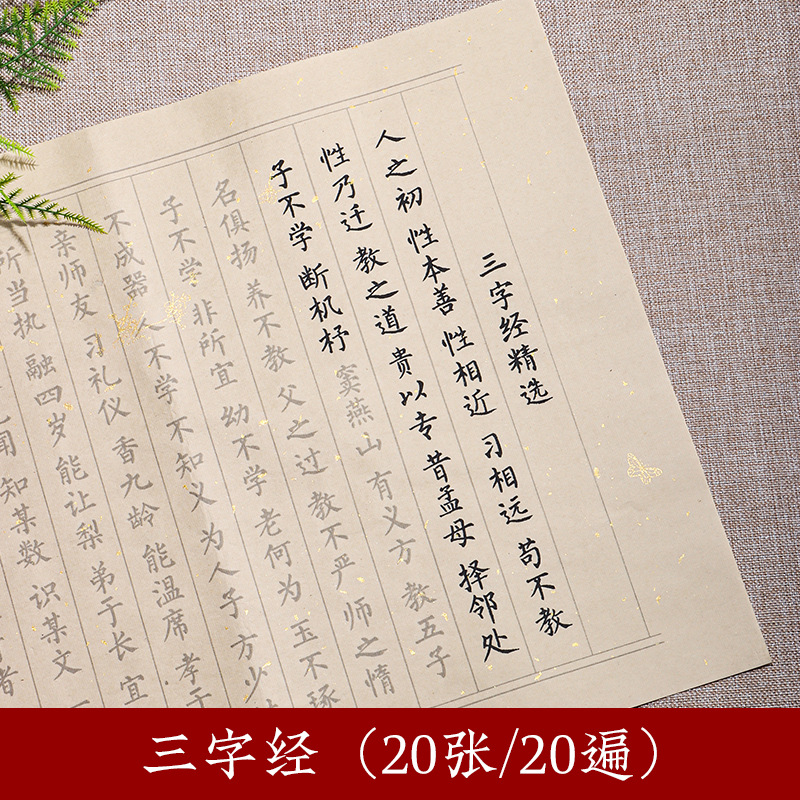 三字经精选
人之初 性本善 性相近 习相远 苟不教
性乃迁 教之道 贵以专 昔孟母 择邻处
子不学 断机杼 窦燕山 有义方 教五子
名俱扬 养不教 父之过 教不严 师之惰
子不学 非所宜 幼不学 老何为 玉不琢
不成器 人不学 不知义 为人子 方少
亲师友 习礼仪 香九龄 能温席 孝于
所当执 融四岁 能让梨 弟于长 宜
闻 知某数 识某文 一
者
三字经（20张/20遍）